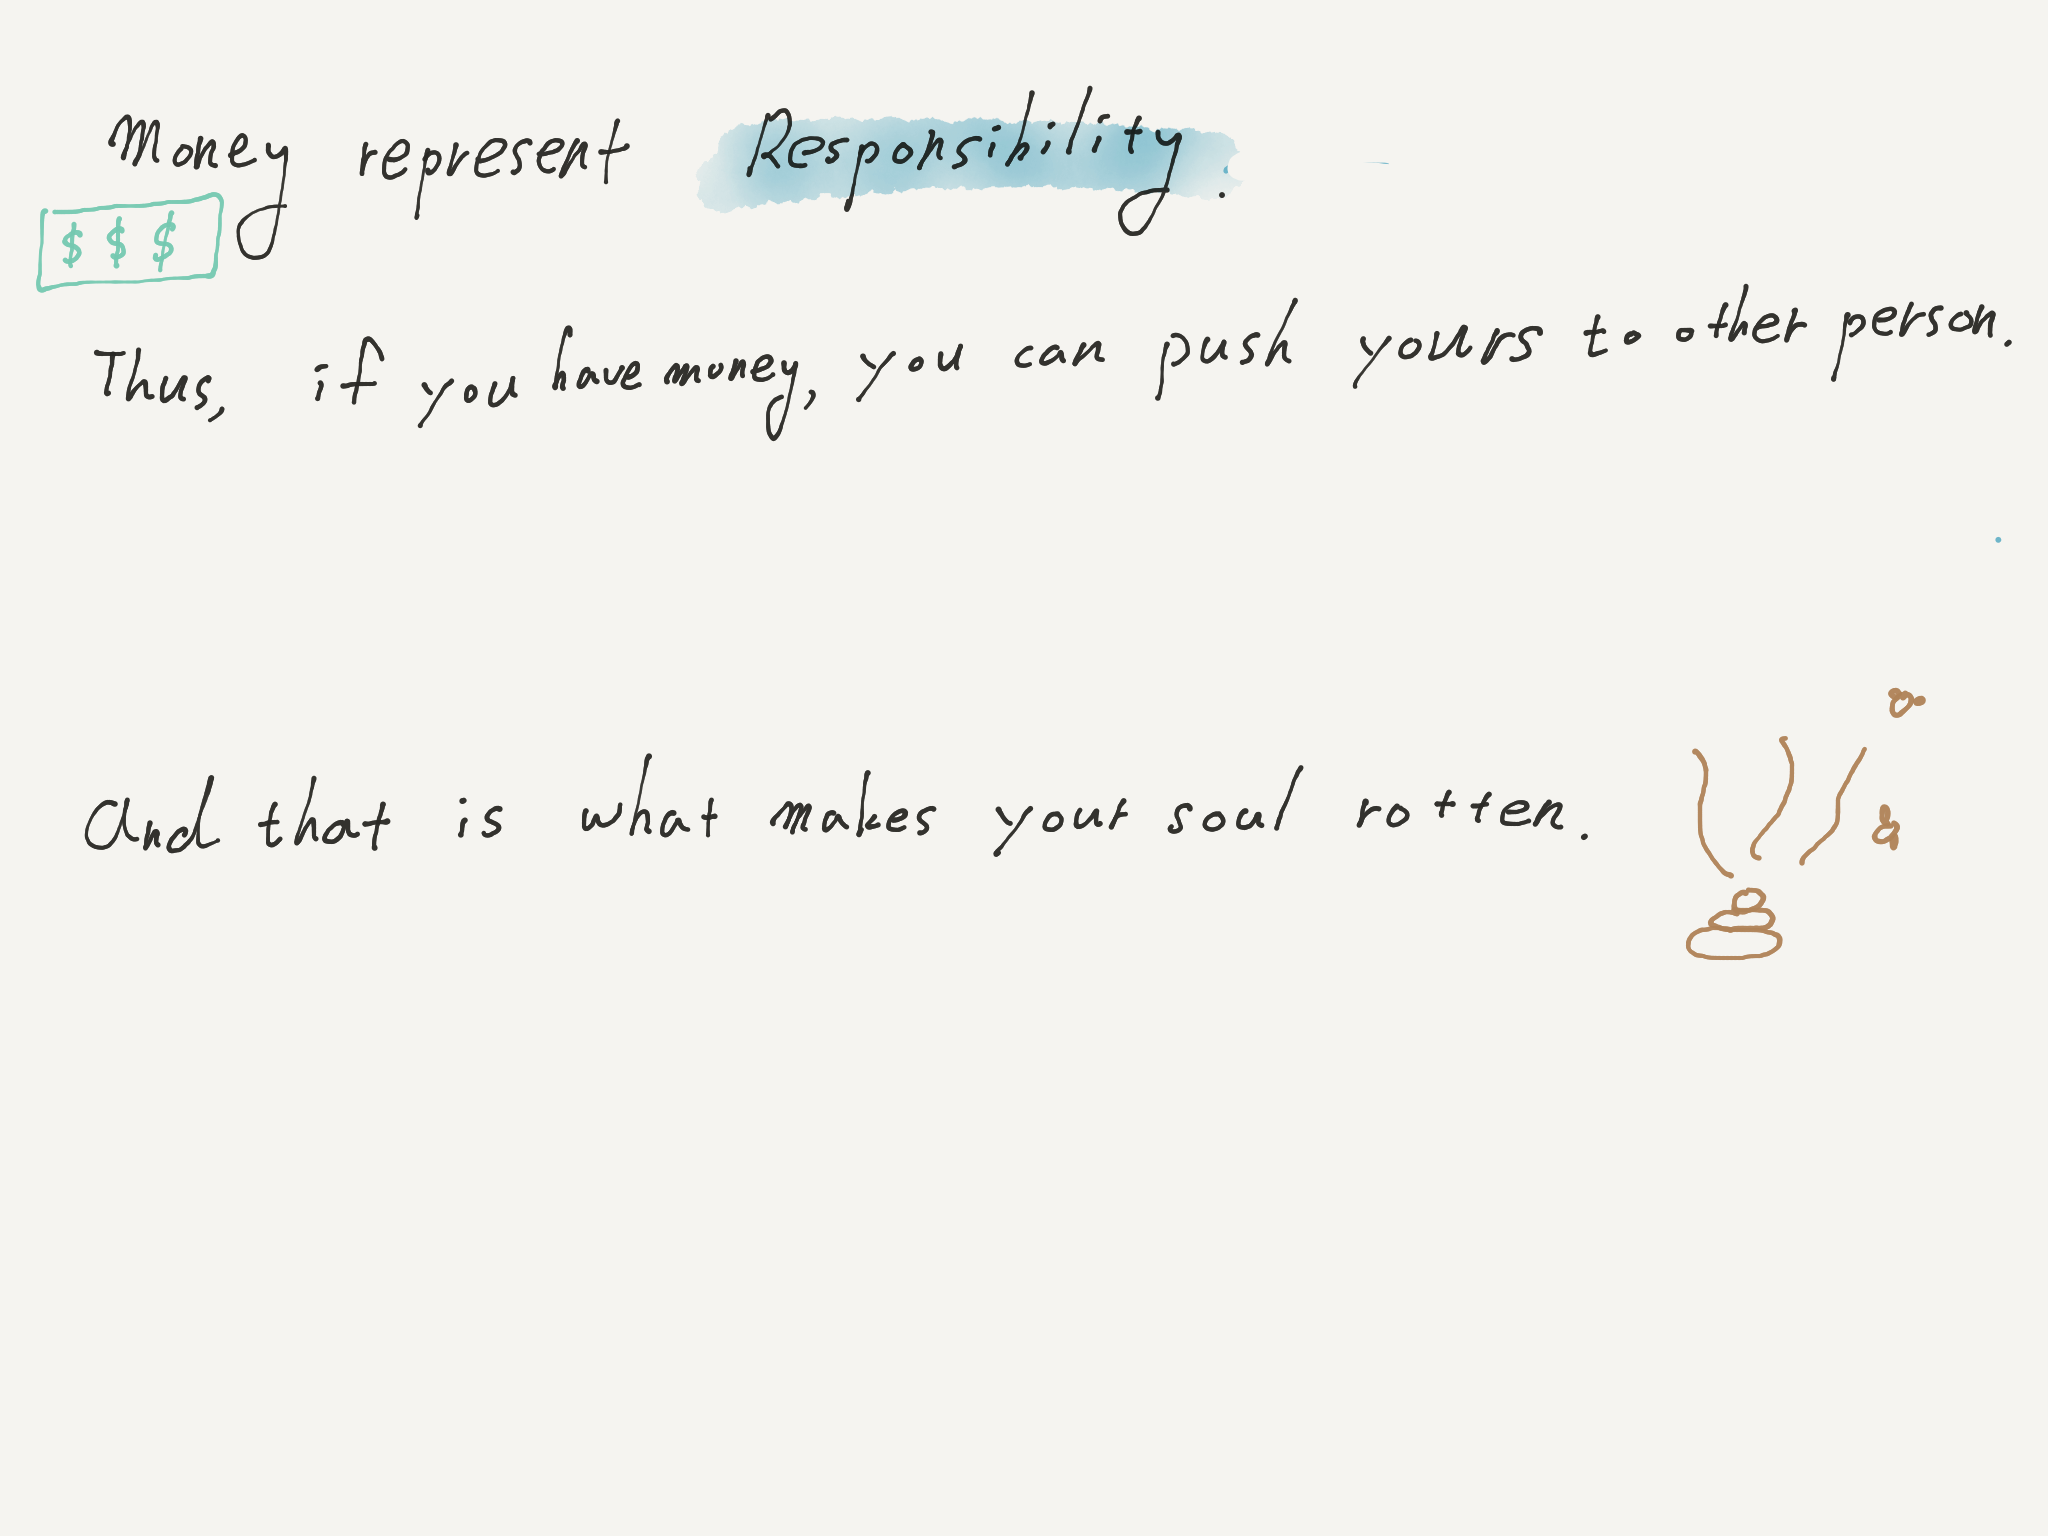 Money represent Responsibility.
$ $ $
Thus, if you have money, you can push yours to other person.
And that is what makes your soul rotten.